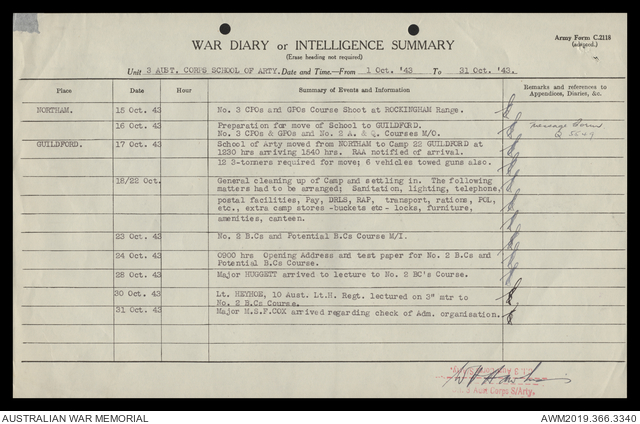 WAR DIARY or INTELLIGENCE SUMMARY
(Erase heading not required)
Army Form C.2118
(adapted.)
Unit 3 AUST. CORPS SCHOOL OF ARTY. Date and Time.—From 1 Oct. '43 To 31 Oct. '43.
Place Date Hour Summary of Events and Information Remarks and references to
Appendices, Diaries, &c.
NORTHAM. 15 Oct. 43 No. 3 CPOs and GPOs Course Shoot at ROCKINGHAM Range.
16 Oct. 43 Preparation for move of School to GUILDFORD.
No. 3 CPOs & GPOs and No. 2 A. & Q. Courses M/O.
GUILDFORD. 17 Oct. 43 School of Arty moved from NORTHAM to Camp 22 GUILDFORD at
1230 hrs arriving 1540 hrs. RAA notified of arrival.
12 3-tonners required for move; 6 vehicles towed guns also.
18/22 Oct. General cleaning up of Camp and settling in. The following
matters had to be arranged; Sanitation, lighting, telephone,
postal facilities, Pay, DRLS, RAP, transport, rations, POL,
etc., extra camp stores -buckets etc - locks, furniture,
amenities, canteen.
23 Oct. 43 No. 2 B.Cs and Potential B.Cs Course M/I.
24 Oct. 43 0900 hrs Opening Address and test paper for No. 2 B.Cs and
Potential B.Cs Course.
28 Oct. 43 Major HUGGETT arrived to lecture to No. 2 BC's Course.
30 Oct. 43 Lt. HEYHOE, 10 Aust. Lt.H. Regt. lectured on 3" mtr to
No. 2 B.Cs Course.
31 Oct. 43 Major M.S.F.COX arrived regarding check of Adm. organisation.
Corps S/Arty.
AUSTRALIAN WAR MEMORIAL
AWM2019.366.3340